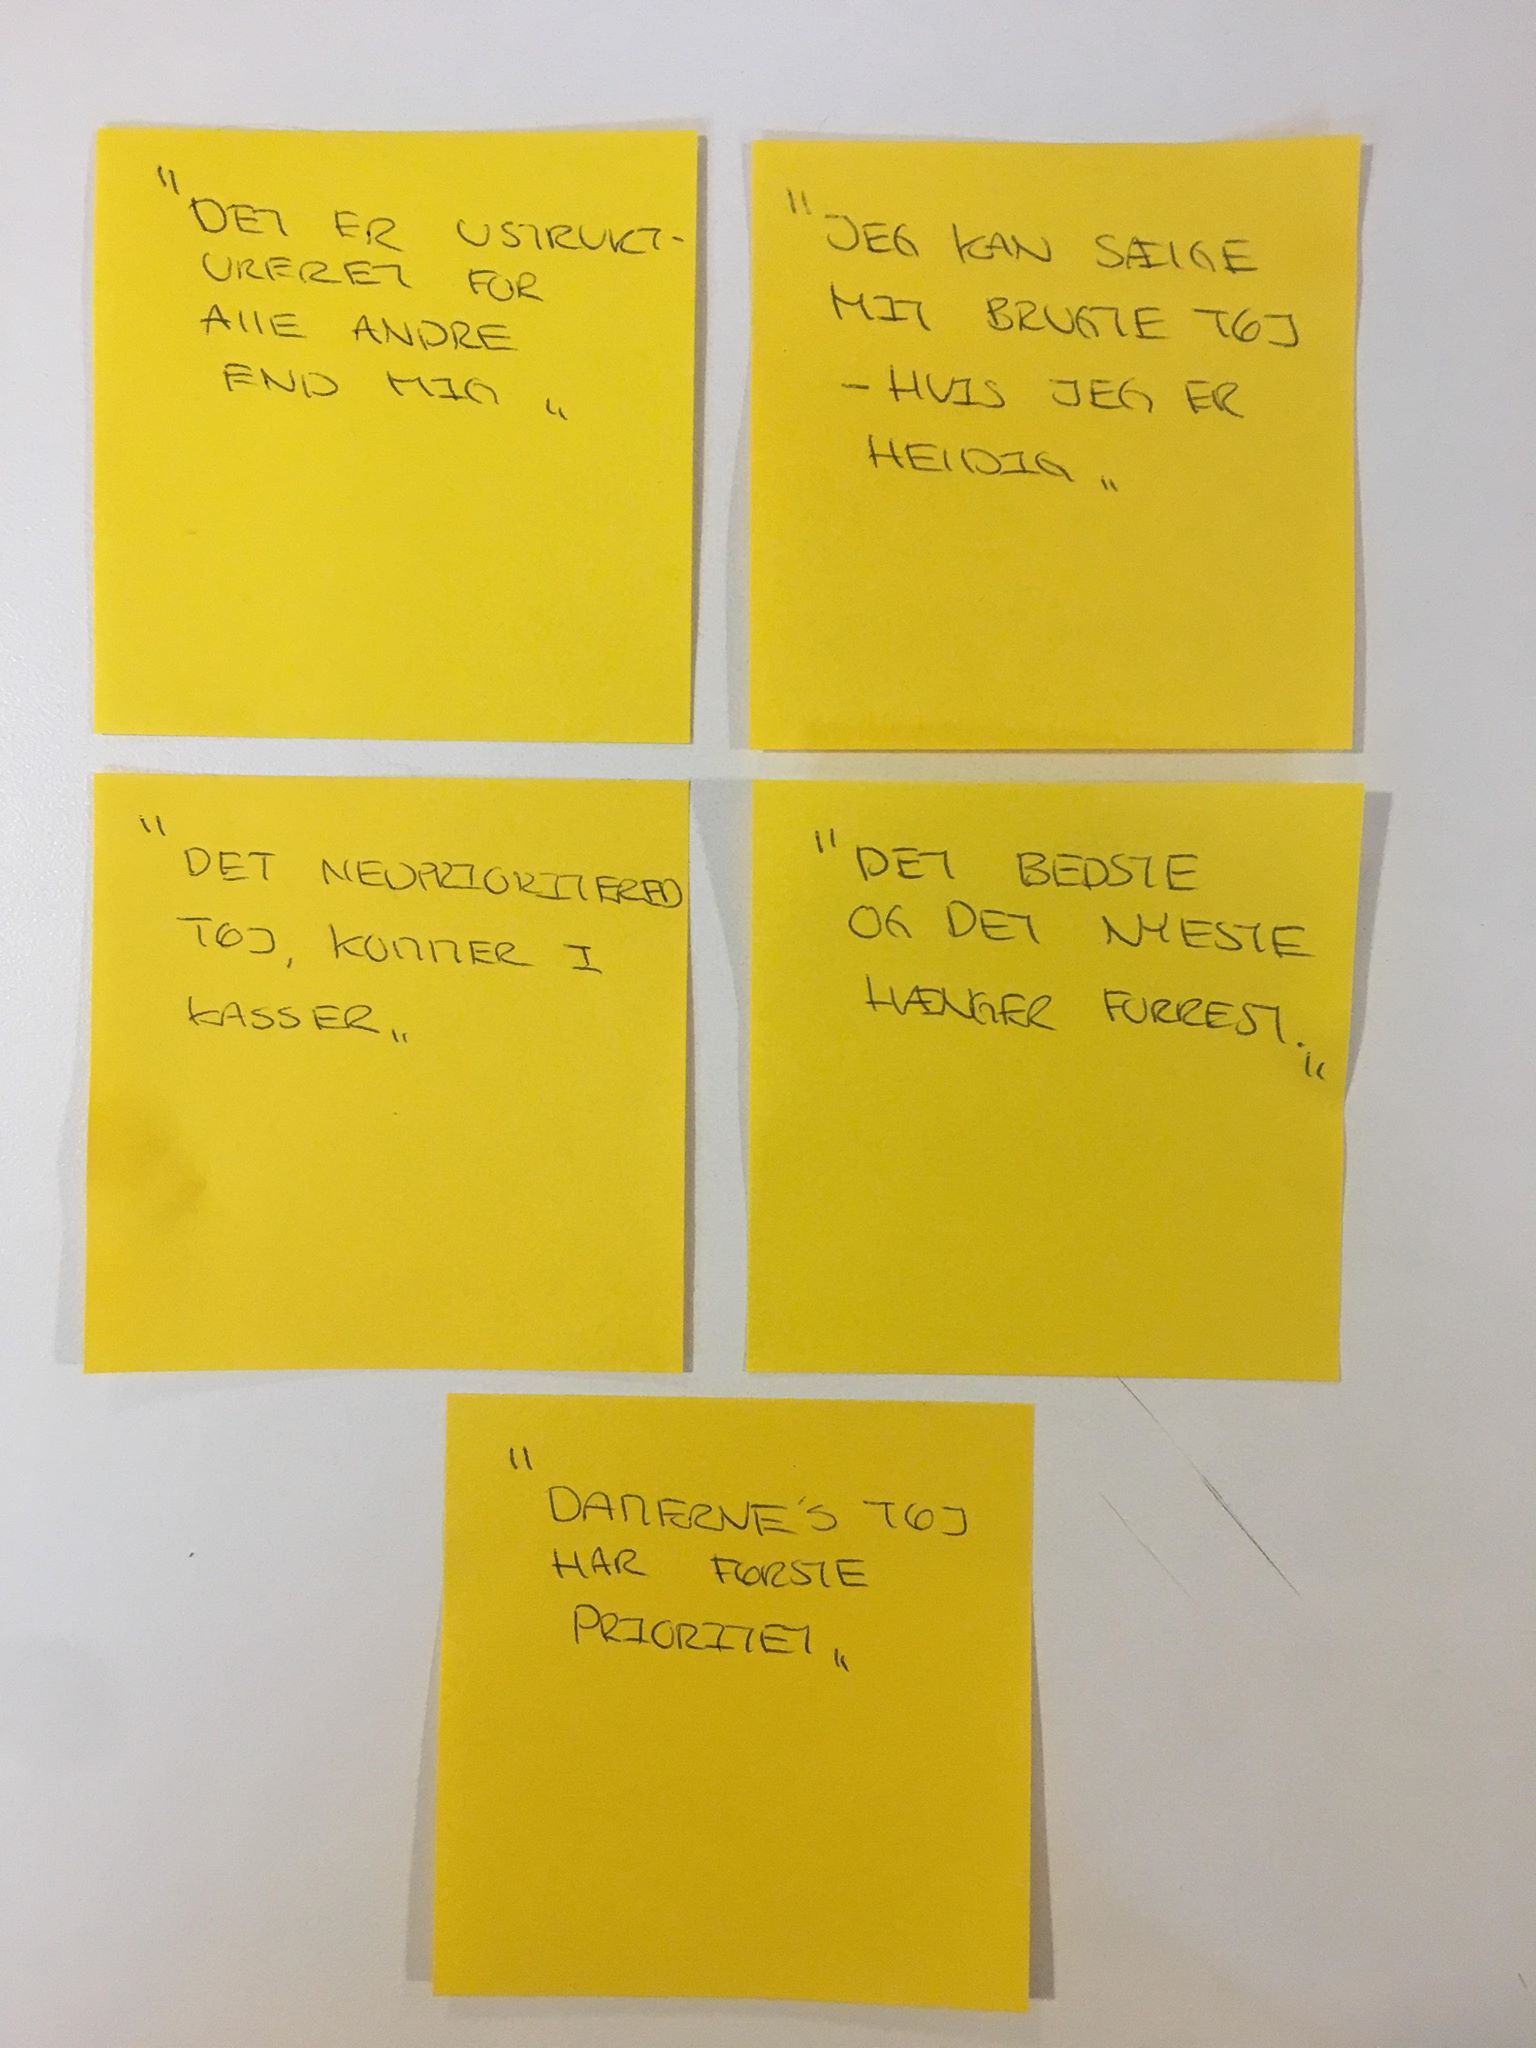 "DET ER USTRUKT-
URERET FOR
AllE ANDRE
END MIG"
"JEG KAN SÆlGE
MIT BRUGTE TØJ
- HVIS JEG ER
HElDIG"
"DET NEDPRIORITERED
TØJ, KOMMER I
KASSER"
"DET BEDSTE
OG DET NYESTE
HÆNGER FORREST."
"DAMERNE'S TØJ
HAR FØRSTE
PRIORITET"